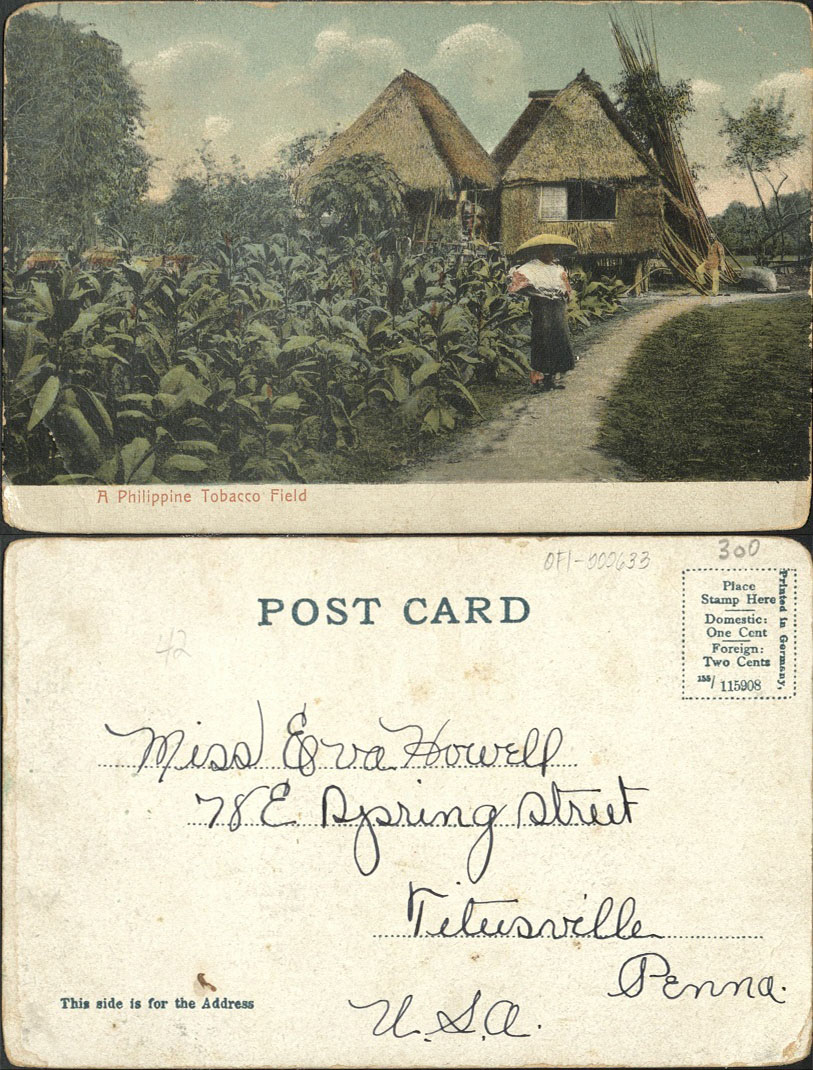 A Philippine Tobacco Field
OFI-000633
300
POST CARD
42
Place
Stamp Here
Domestic:
One Cent
Foreign:
Two Cents
155/115908
Printed in Germany,
Miss Eva Howell
78 E Spring Street
Titusville
Penna.
U.S.A.
This side is for the Address